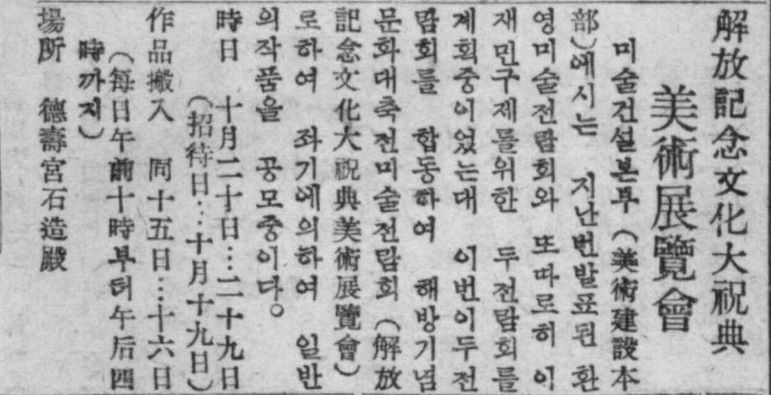 解放記念文化大祝典
美術展覽會
미술건설본부(美術建設本
部)에서는 지난번발표된 환
영미술전람회와 또따로히 이
재민구제를위한 두전람회를
계획중이었는대 이번이두전
람회를 합동하여 해방기념
문화대축전미술전람회(解放
記念文化大祝典美術展覽會)
로하여 좌기에의하여 일반
의작품을 공모중이다。
時日 十月二十日…二十九日
(招待日…十月十九日)
作品搬入 同十五日…十六日
(每日午前十時부터午后四
時까지)
場所 德壽宮石造殿